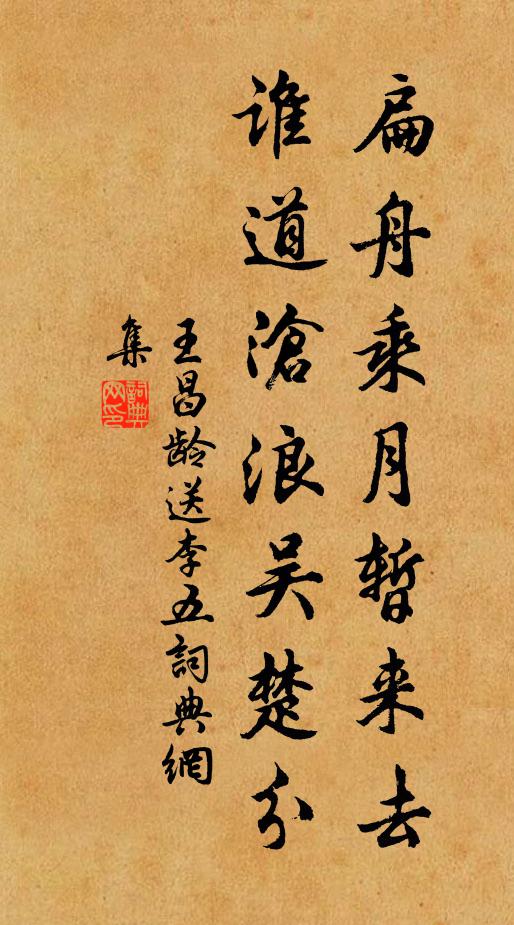 扁舟乘月暫来去
谁道滄浪吴楚分
王昌龄送李五詞典網
集
詞典
网印